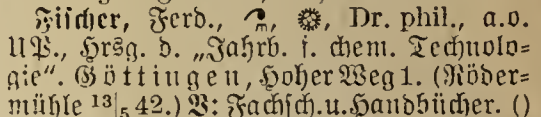 Fischer, Ferd., Dr. phil., a.o.
UP., Hrsg. d. „Jahrb. f. chem. Technolo=
gie“. Göttingen, Hoher Weg 1. (Röder=
mühle 13|5 42.) V: Fachsch. u. Handbücher. ()